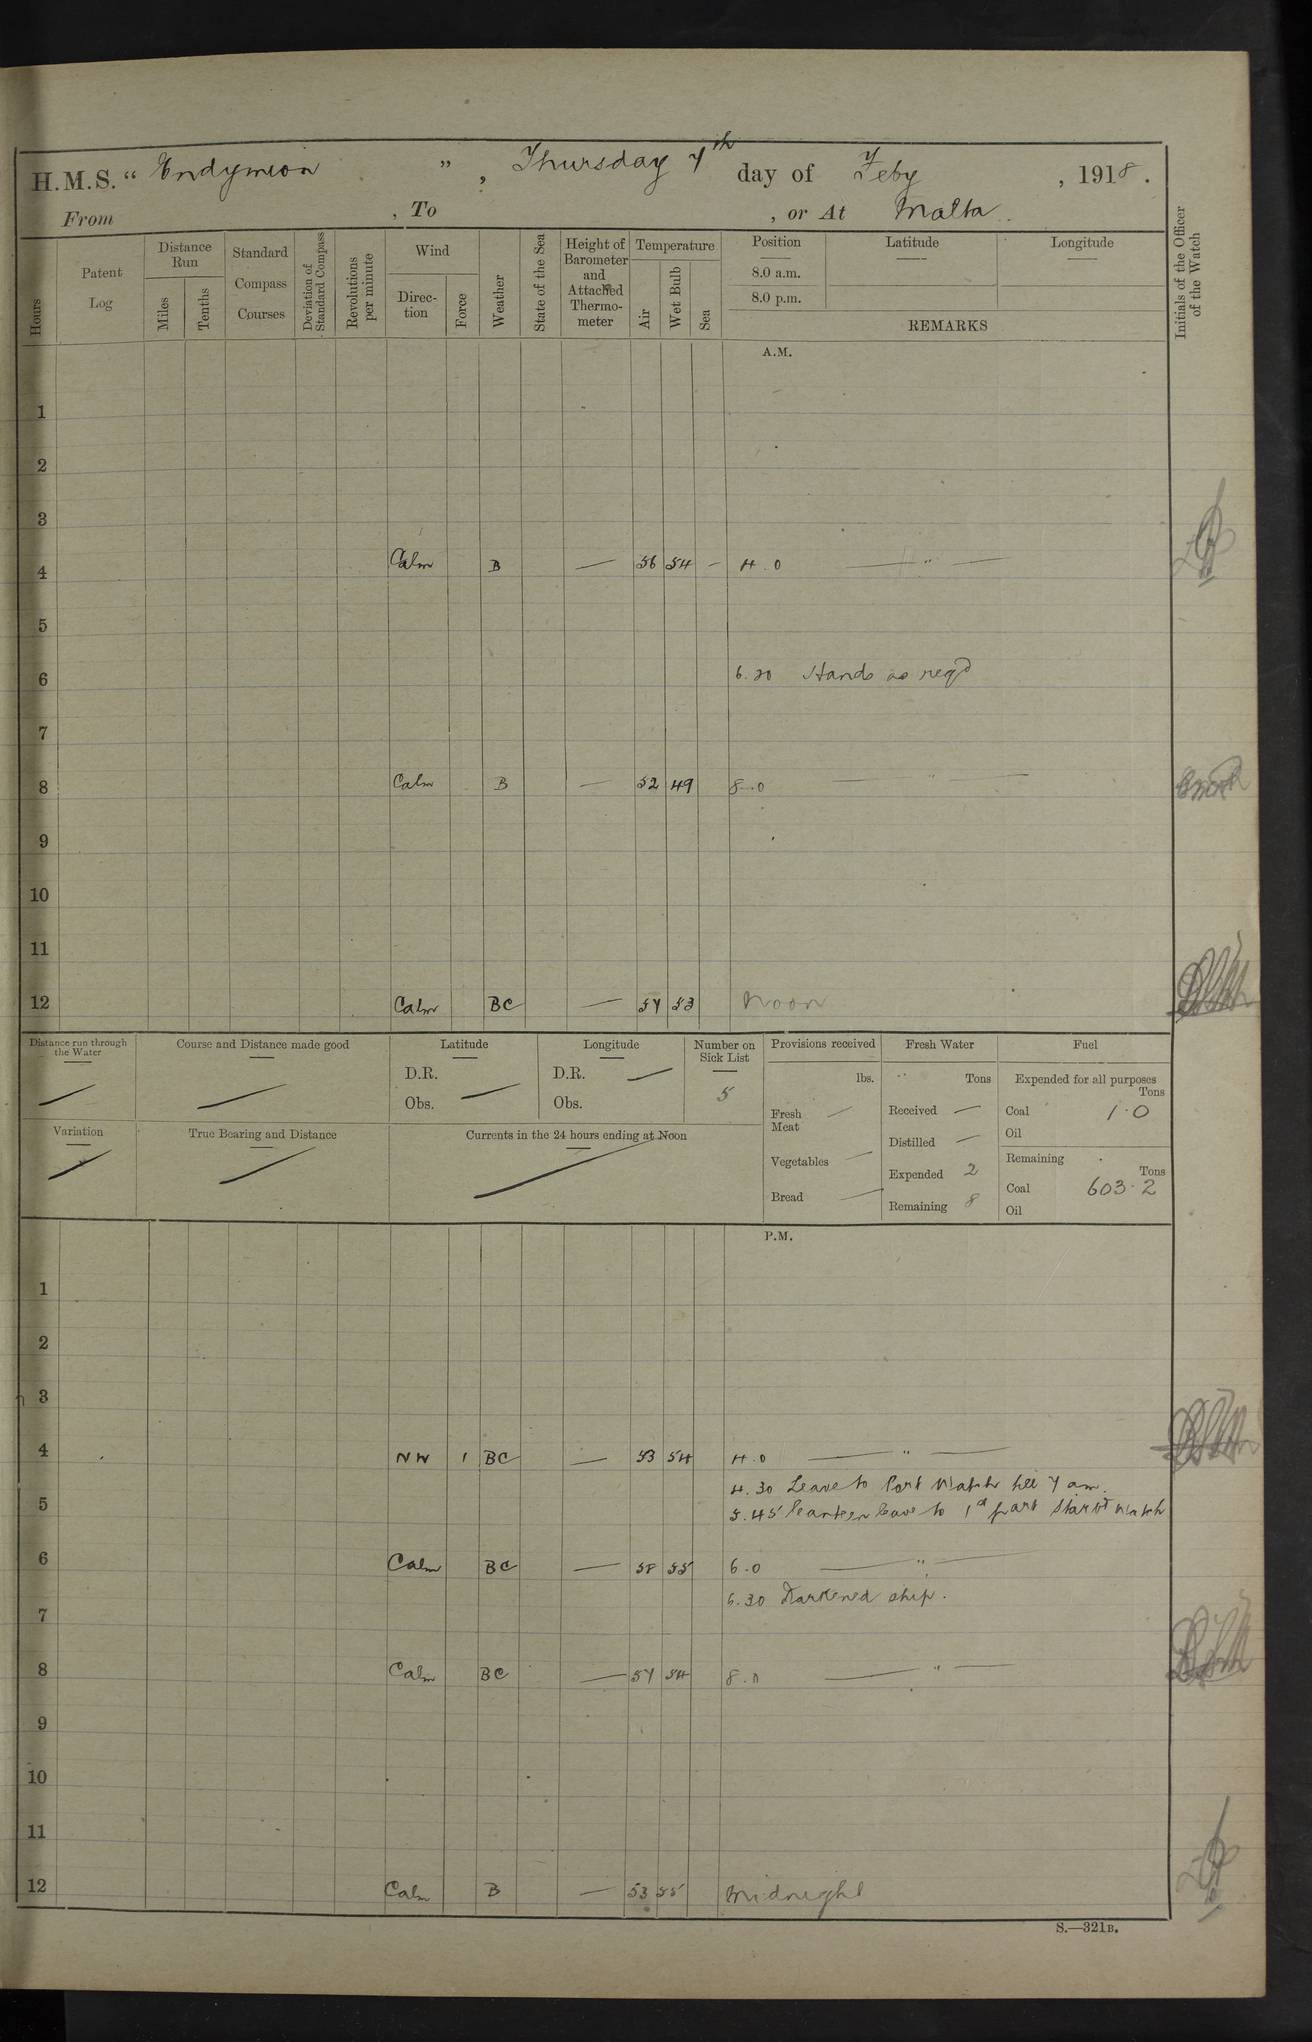 H.M.S. “ Endymion ”, Thursday 7th day of Feby, 1918.
From , To , or At Malta.
Hours
Patent Log
Distance Run
Miles
Tenths
Standard Compass Courses
Deviation of Standard Compass
Revolutions per minute
Wind
Direc-tion
Force
Weather
State of the Sea
Height of Barometer and Attached Thermo-meter
Temperature
Air
Wet Bulb
Sea
Position
8.0 a.m.
8.0 p.m.
Latitude
Longitude
REMARKS
Initials of the Officer of the Watch
A.M.
1
2
3
4 Calm B — 56 54 - 4.0 — " —
5
6 6.20 Hands as reqd
7
8 Calm B — 52 49 8.0 — " —
9
10
11
12 Calm BC — 57 53 Noon
Distance run through the Water
Course and Distance made good
Latitude
D.R.
Obs.
Longitude
D.R.
Obs.
Number on Sick List
5
Variation
True Bearing and Distance
Currents in the 24 hours ending at Noon
Provisions received
lbs.
Fresh Meat —
Vegetables —
Bread —
Fresh Water
Tons
Received —
Distilled —
Expended 2
Remaining 8
Fuel
Expended for all purposes
Tons
Coal 1.0
Oil
Remaining
Tons
Coal 603.2
Oil
P.M.
1
2
3
4 NW 1 BC — 53 54 4.0 — " —
4.30 Leave to Port Watch till 7 am.
5 5.45 Canteen leave to 1st part Starbd Watch
6 Calm BC — 58 55 6.0 — " —
6.30 Darkened ship.
7
8 Calm BC — 57 54 8.0 — " —
9
10
11
12 Calm B — 53 55 Midnight
S.—321B.